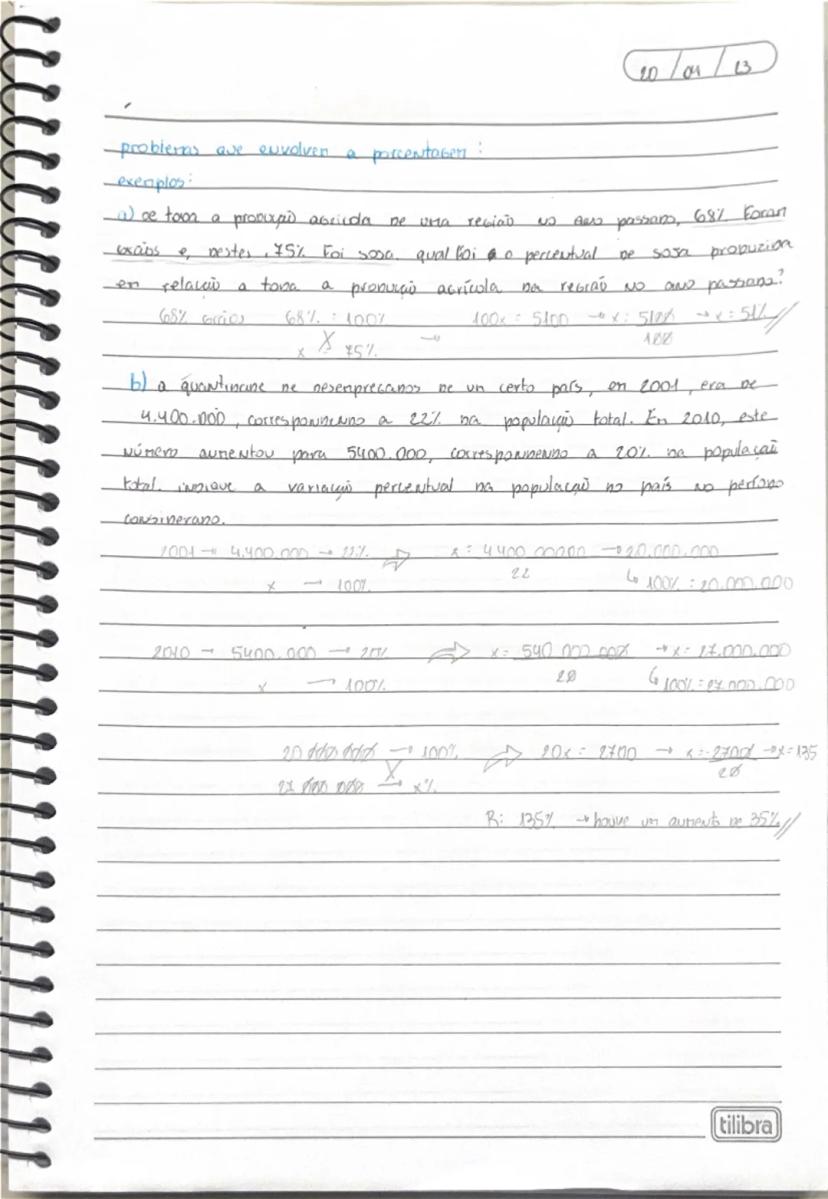 20 / 04 / 23
problemas que envolvem a porcentagem:
exemplos:
a) de toda a produção agrícola de uma região no ano passado, 68% foram
grãos e, destes, 75% foi soja. qual foi o percentual de soja produzida
em relação a toda a produção agrícola da região no ano passado?
68% grãos 68% = 100% → 100x = 5100 → x = 5100 → x = 51% //
x = 75% 100
b) a quantidade de desempregados de um certo país, em 2001, era de
4.400.000, correspondendo a 22% da população total. Em 2010, este
número aumentou para 5400.000, correspondendo a 20% da população
total. indique a variação percentual da população do país no período
considerado.
2001 → 4.400.000 → 22% ⇒ x = 4400 00000 → 20.000.000
x → 100% 22 ↳ 100% = 20.000.000
2010 → 5400.000 → 20% ⇒ x = 540 000 000 → x = 27.000.000
x → 100% 20 ↳ 100% = 27.000.000
20 000 000 → 100% ⇒ 20x = 2700 → x = 2700 → x = 135
27 000 000 → x% 20
R: 135% → houve um aumento de 35% //
tilibra